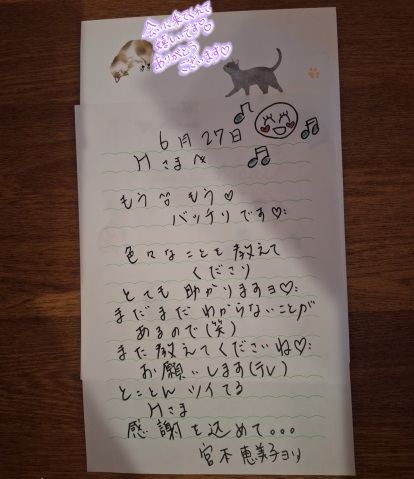 会いに来てくれて
嬉しいです♡
ありがとう
ございます♡
6月27日
Mさまへ
もう〜もう♡
バッチリです♡:
色々なことを教えて
くださり
とても助かりますヨ♡:
まだまだわからないことが
あるので(笑)
また教えてくださいね♡:
お願いします(テレ)
とことんツイてる
Mさま
感謝を込めて...
宮本恵美子ヨリ